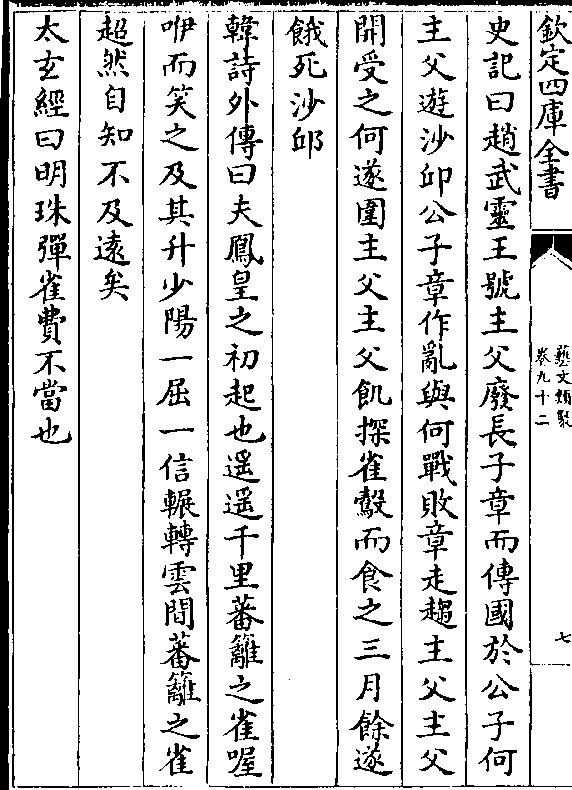 欽定四庫全書
藝文類聚
卷九十二
七
史記曰趙武靈王號主父廢長子章而傳國於公子何
主父遊沙邱公子章作亂與何戰敗章走趨主父主父
開受之何遂圍主父主父飢探雀鷇而食之三月餘遂
餓死沙邱
韓詩外傳曰夫鳳皇之初起也遥遥千里蕃籬之雀喔
咿而笑之及其升少陽一屈一信輾轉雲間蕃籬之雀
超然自知不及逺矣
太玄經曰明珠彈雀費不當也